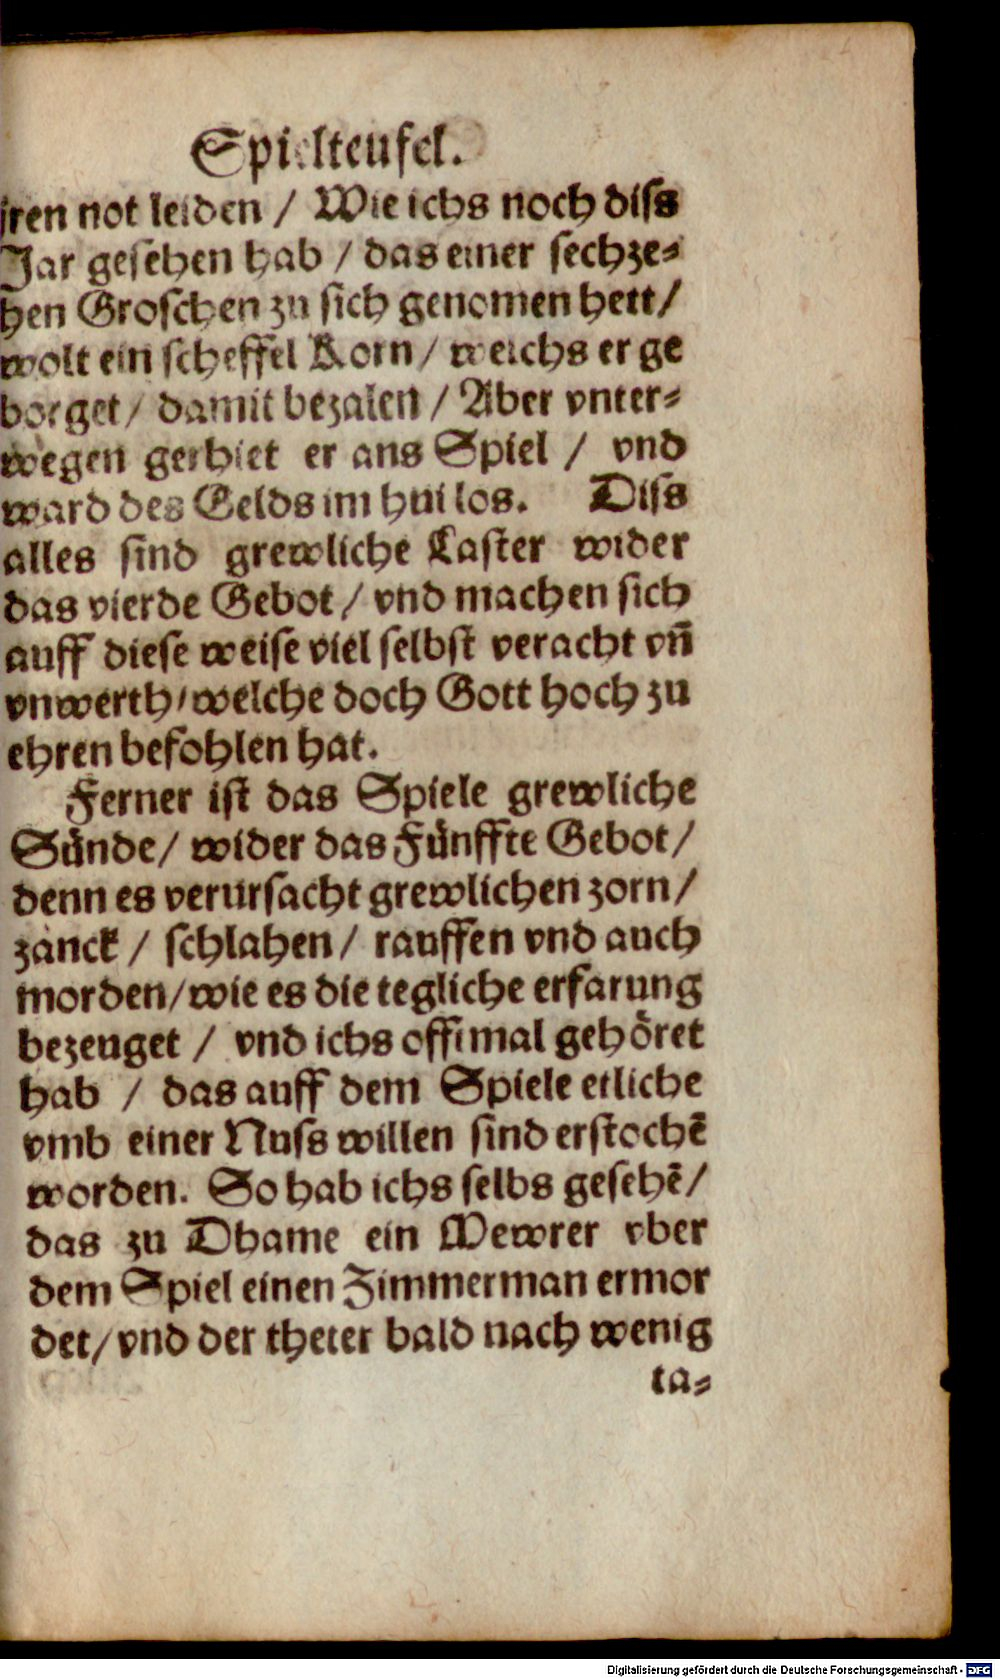 Spielteufel.
jren not leiden / Wie ichs noch diss
Jar gesehen hab / das einer sechze-
hen Groschen zu sich genomen hett /
wolt ein scheffel Korn / welchs er ge
borget / damit bezalen / Aber vnter-
wegen gerhiet er ans Spiel / vnd
ward des Gelds im hui los. Diss
alles sind grewliche Laster wider
das vierde Gebot / vnd machen sich
auff diese weise viel selbst veracht vn̄
vnwerth / welche doch Gott hoch zu
ehren befohlen hat.
Ferner ist das Spiele grewliche
Sünde / wider das Fünffte Gebot /
denn es verursacht grewlichen zorn /
zanck / schlahen / rauffen vnd auch
morden / wie es die tegliche erfarung
bezeuget / vnd ichs offtmal gehöret
hab / das auff dem Spiele etliche
vmb einer Nuss willen sind erstochē
worden. So hab ichs selbs gesehē /
das zu Dhame ein Mewrer vber
dem Spiel einen Zimmerman ermor
det / vnd der theter bald nach wenig
ta-
Digitalisierung gefördert durch die Deutsche Forschungsgemeinschaft - DFG